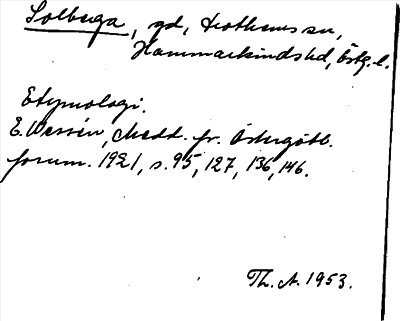 Solberga, gd, Drothems sn,
Hammarkinds hd, Östg. l.
Etymologi.
E. Wessén, Medd. fr. Östergötl.
fornm. 1921, s. 95, 127, 136, 146.
Th. A. 1953.